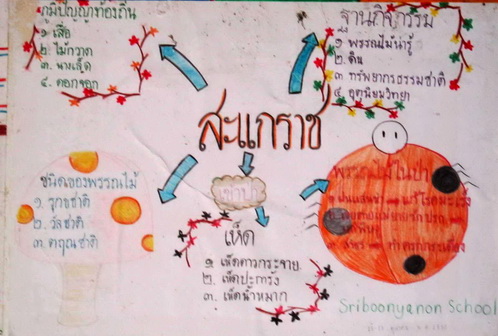 ภูมิปัญญาท้องถิ่น
๑. เสื่อ
๒. ไม้กวาด
๓. นางเล็ด
๔. ดอกจอก
ฐานกิจกรรม
๑ พรรณไม้น่ารู้
๒ ดิน
๓ ทรัพยากรธรรมชาติ
๔ อุตุนิยมวิทยา
สะแกราช
ชนิดของพรรณไม้
๑. รุกขชาติ
๒. วัลชาติ
๓. คฤณชาติ
เข้าป่า
เห็ด
๑ เห็ดดาวกระจาย
๒. เห็ดปะการัง
๓. เห็ดน้ำหมาก
พรรณไม้ในป่า
แก้โรคมะเร็ง
Sriboonyanon School